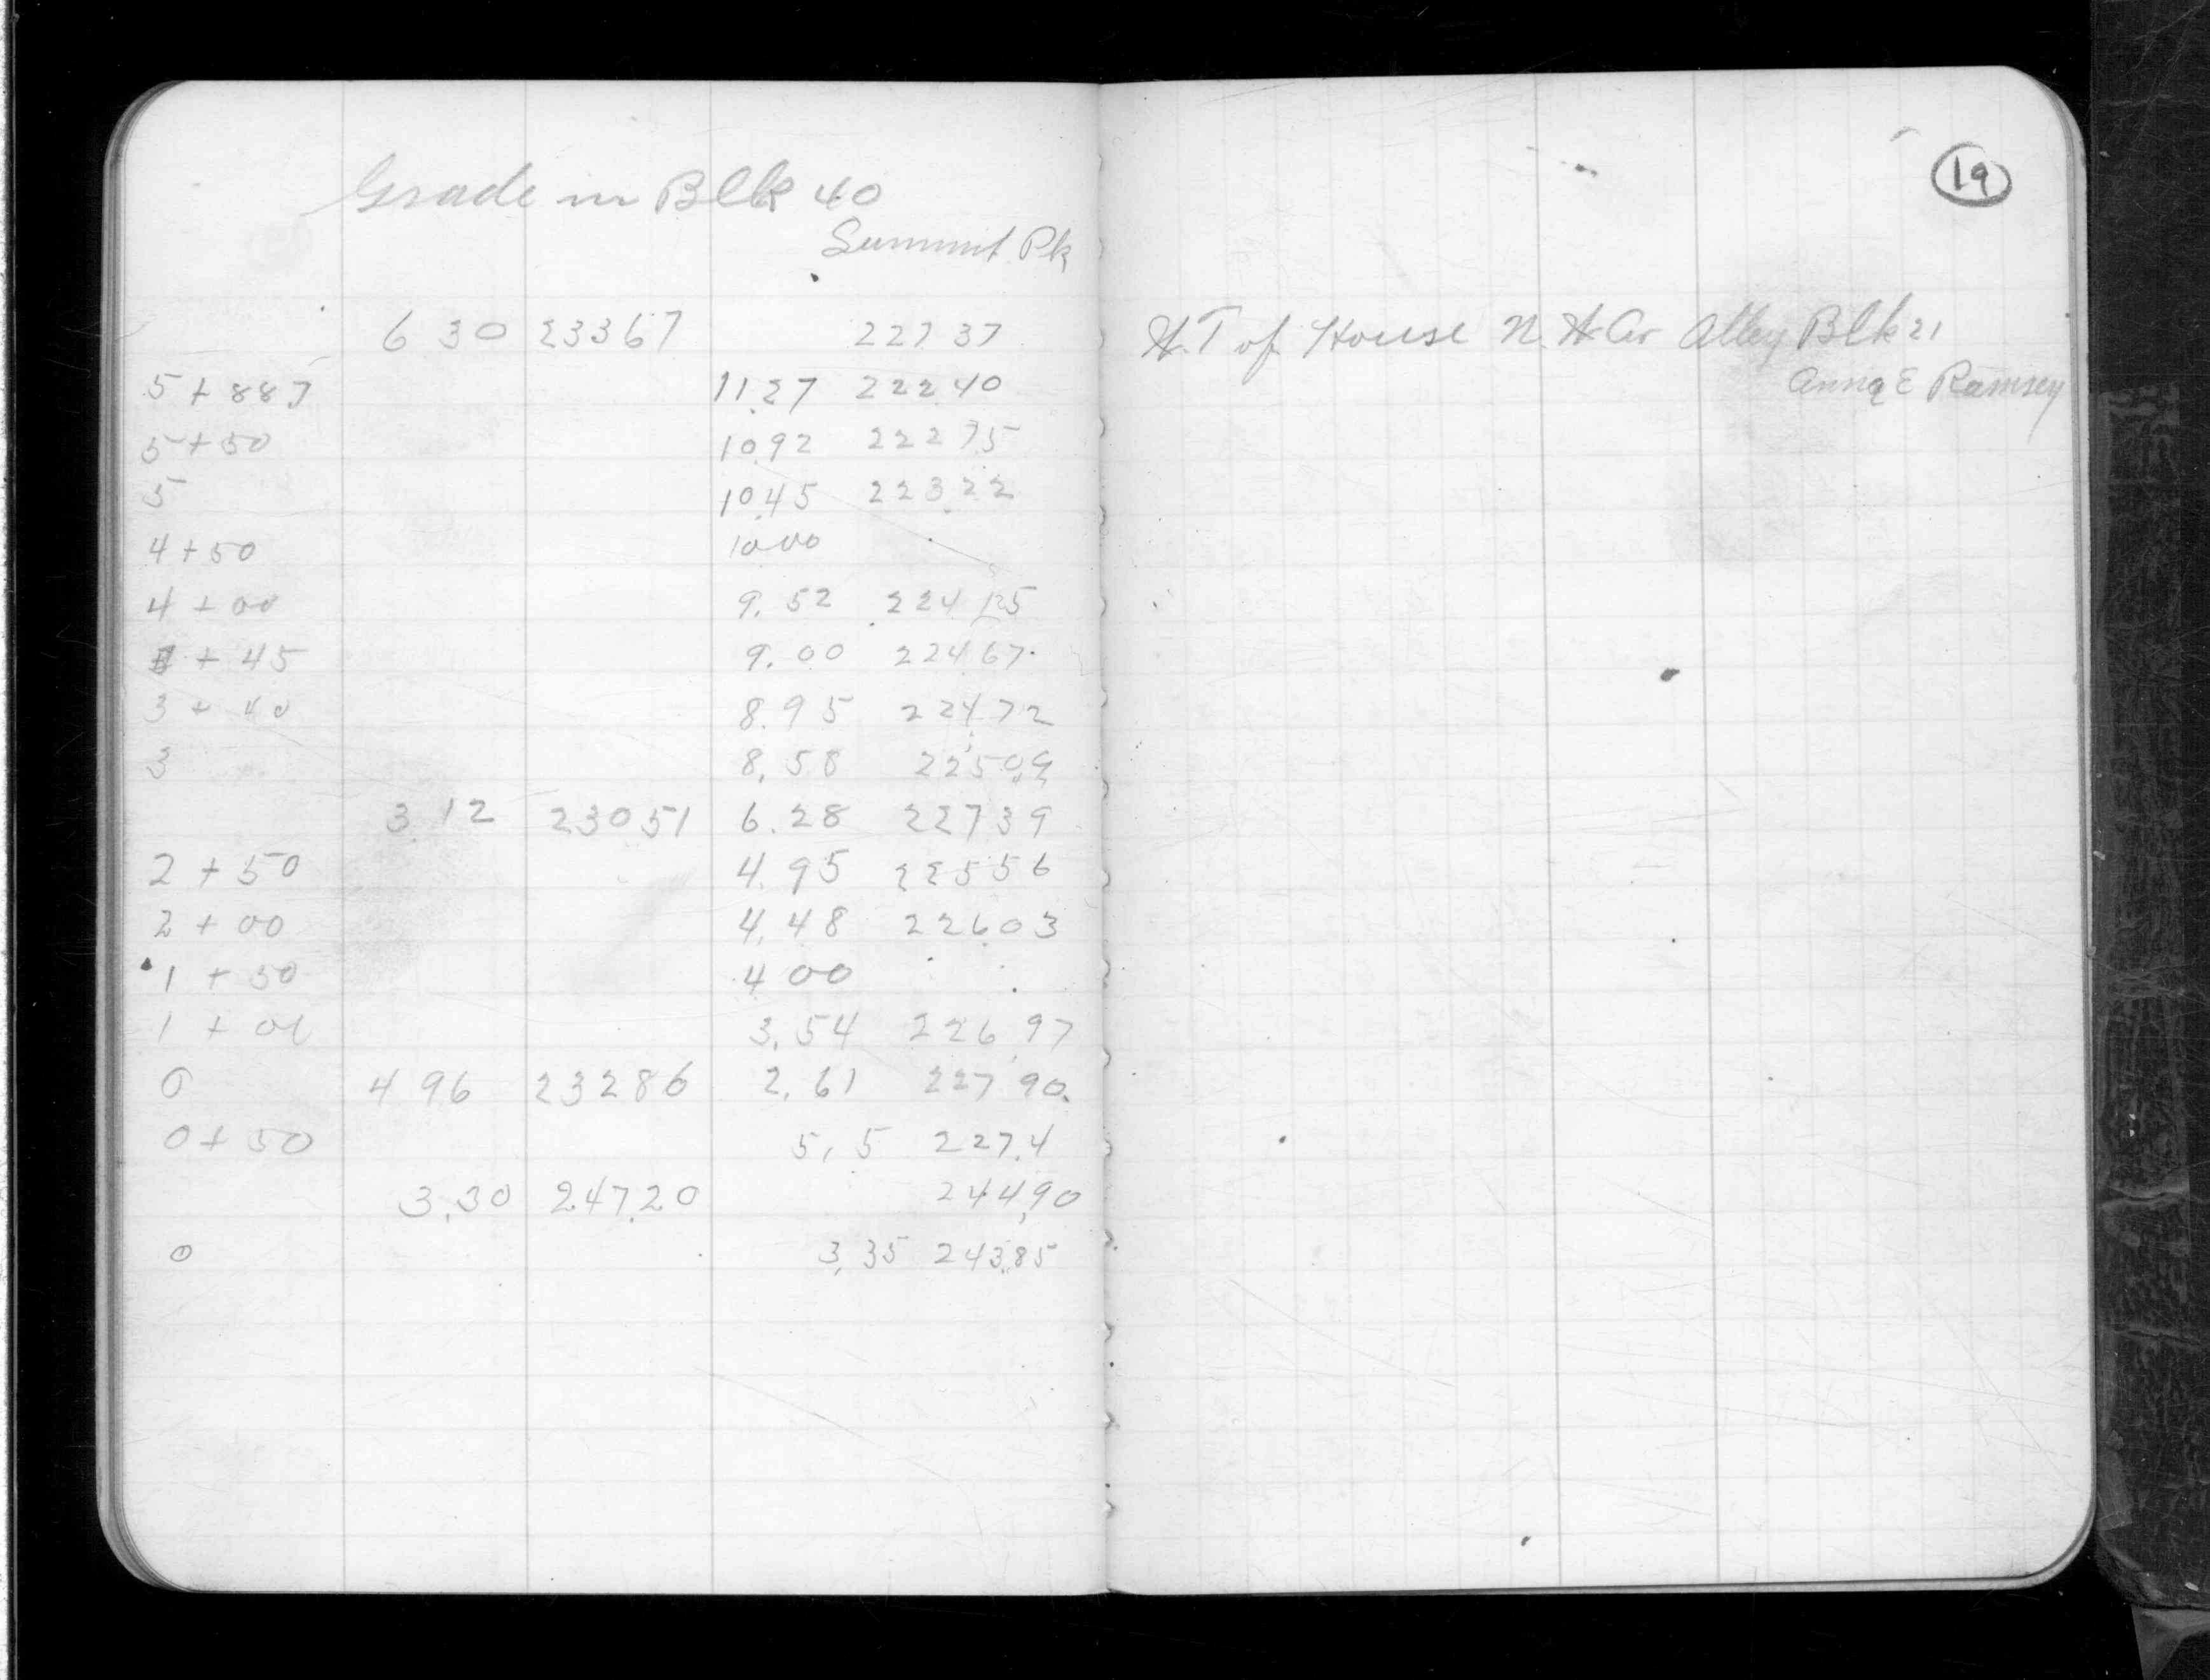 Grade in Blk 40
Summit Pk
6 30 23367 227 37
5 + 887 11.27 222 40
5 + 50 10.92 222 75
5 10.45 223 22
4 + 50 10 00
4 + 00 9. 52 224 15
+ 45 9. 00 224 67
3 + 40 8. 95 224 72
3 8. 58 225 09
3 12 230 51 6. 28 227 39
2 + 50 4. 95 225 56
2 + 00 4. 48 226 03
1 + 50 4 00
1 + 00 3. 54 226 97
0 4 96 232 86 2. 61 227 90
0 + 50 5. 5 227.4
3.30 247.20 244.90
0 3.35 243.85
19
of House N. Alley Blk 21
Anna E Ramsey